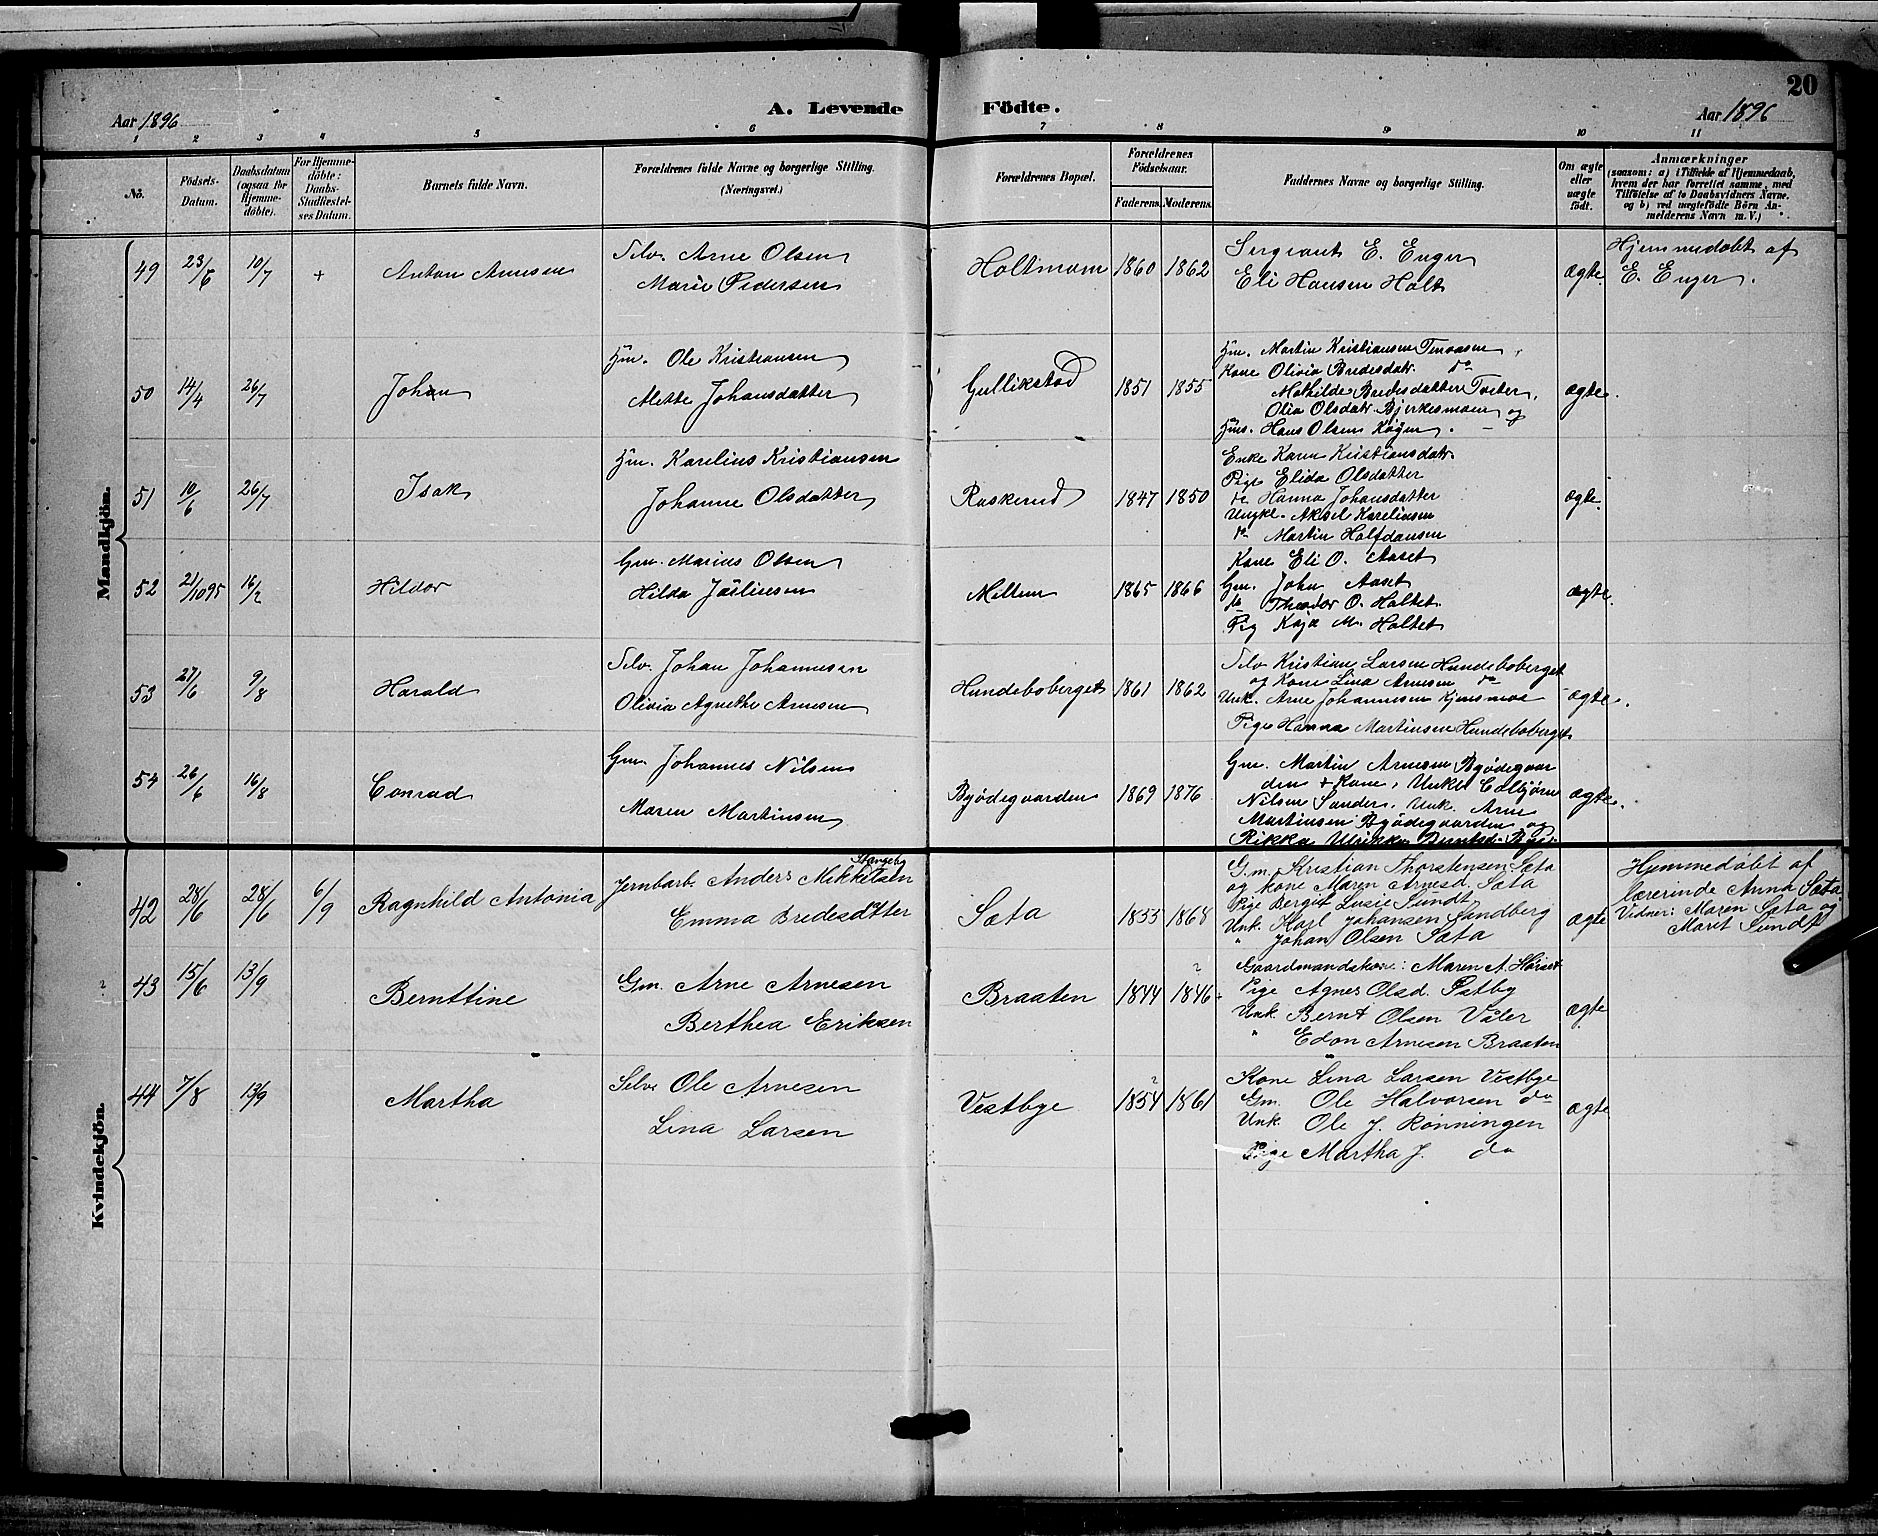 20
A. Levende Födte.
Aar 1896
Aar 1896
1 2 3 4 5 6 7 8 9 10 11
No.
Födsels-Datum.
Daabsdatum (ogsaa for Hjemme-döbte).
For Hjemme-döbte: Daabs-Stadfæstel-ses Datum.
Barnets fulde Navn.
Forældrenes fulde Navne og borgerlige Stilling. (Næringsvei.)
Forældrenes Bopæl.
Forældrenes Födselsaar.
Faderens. Moderens.
Faddernes Navne og borgerlige Stilling.
Om ægte eller uægte födt.
Anmærkninger
(saasom: a) i Tilfælde af Hjemmedaab,
hvem der har forrettet samme, med
Tilföielse af to Daabsvidners Navne.
og b) ved uægtefödte Börn An-
melderens Navn m. V.)
Mandkjön.
49 23/6 10/7 + Anton Arnesen
Selv. Arne Olsen
Marie Pedersen
Holtmoen 1860 1862
Sergeant E. Enger
Eli Hansen Holt
ægte.
Hjemmedøbt af
E. Enger.
50 14/4 26/7 Johan
Hm. Ole Kristiansen
Alette Johansdatter
Gullikstad 1851 1855
Hm. Martin Kristiansen
Kone Olivia Bredesdatr. do
Mathilde Bredesdatter Tveter,
Olia Olsdatr. Bjerkesmoen og
Hms. Hans Olsen Køyen.
ægte.
51 10/6 26/7 Isak
Hm. Karelius Kristiansen
Johanne Olsdatter
Raskerud 1847 1850
Enke Karen Kristiansdatr.
Pige Elida Olsdatter
do Hanna Johansdatter
Ungkl. Aksel Kareliusen
do Martin Halfdansen
ægte.
52 21/10 95 16/2 Hildor
Gm. Marius Olsen
Hilda Juliussen
Mellem 1865 1866
Kone Eli O. Aaset
Gm. John Aaset
do Theodor O. Haltet
Pig Kaja M. Haltet
ægte.
53 27/6 9/8 Harald
Selv. Johan Johannesen
Olivia Agnethe Arnesen
Hundeboberget 1861 1862
Selv Kristian Larsen Hundeboberget
og Kone Lina Arnesen do
Unk. Arne Johannesen Kjensmoe
Pige Hanna Martinsen Hundeboberget
ægte.
54 26/6 16/8 Conrad
Gm. Johannes Nilsen
Maren Martinsen
Bygdegaarden 1869 1876
Gm. Martin Arnesen Bygdegaar
den + Kone, Unkl Edbjørn
Nilsen Sander, Unk. Arne
Martinsen Bygdegaarden og
Rikka Ulrikke
ægte.
Kvindekjön.
42 28/6 28/6 6/9 Ragnhild Antonia
Stangeby
Jernbarb. Anders Mikkelsen
Emma Bredesdatter
Sæta 1833 1868
G.m. Kristian Thorstensen Sæta
og kone Maren Arnesd. Sæta
Pige Bergit Lusie Sundt
Unk. Karl Johansen Sandberg
" Johan Olsen Sæta
ægte
Hjemmedøbt af
lærerinde Anna Sæta
Vidner: Maren Sæta og
Marit Sundt
43 15/6 13/9 Bernttine
Gm. Arne Arnesen
Berthea Eriksen
Braaten 1844 1846
Gaardmandskone: Maren A. Horset
Pige Agnes Olsd. Østby
Unk. Bernt Olsen Våler
" Edon Arnesen Braaten
ægte
44 7/8 13/9 Martha
Selv. Ole Arnesen
Lina Larsen
Vestbye 1854 1861
Kone Lina Larsen Vestbye
Gm. Ole Halvorsen do
Unk. Ole J. Rønningen
Pige Martha J. do
ægte